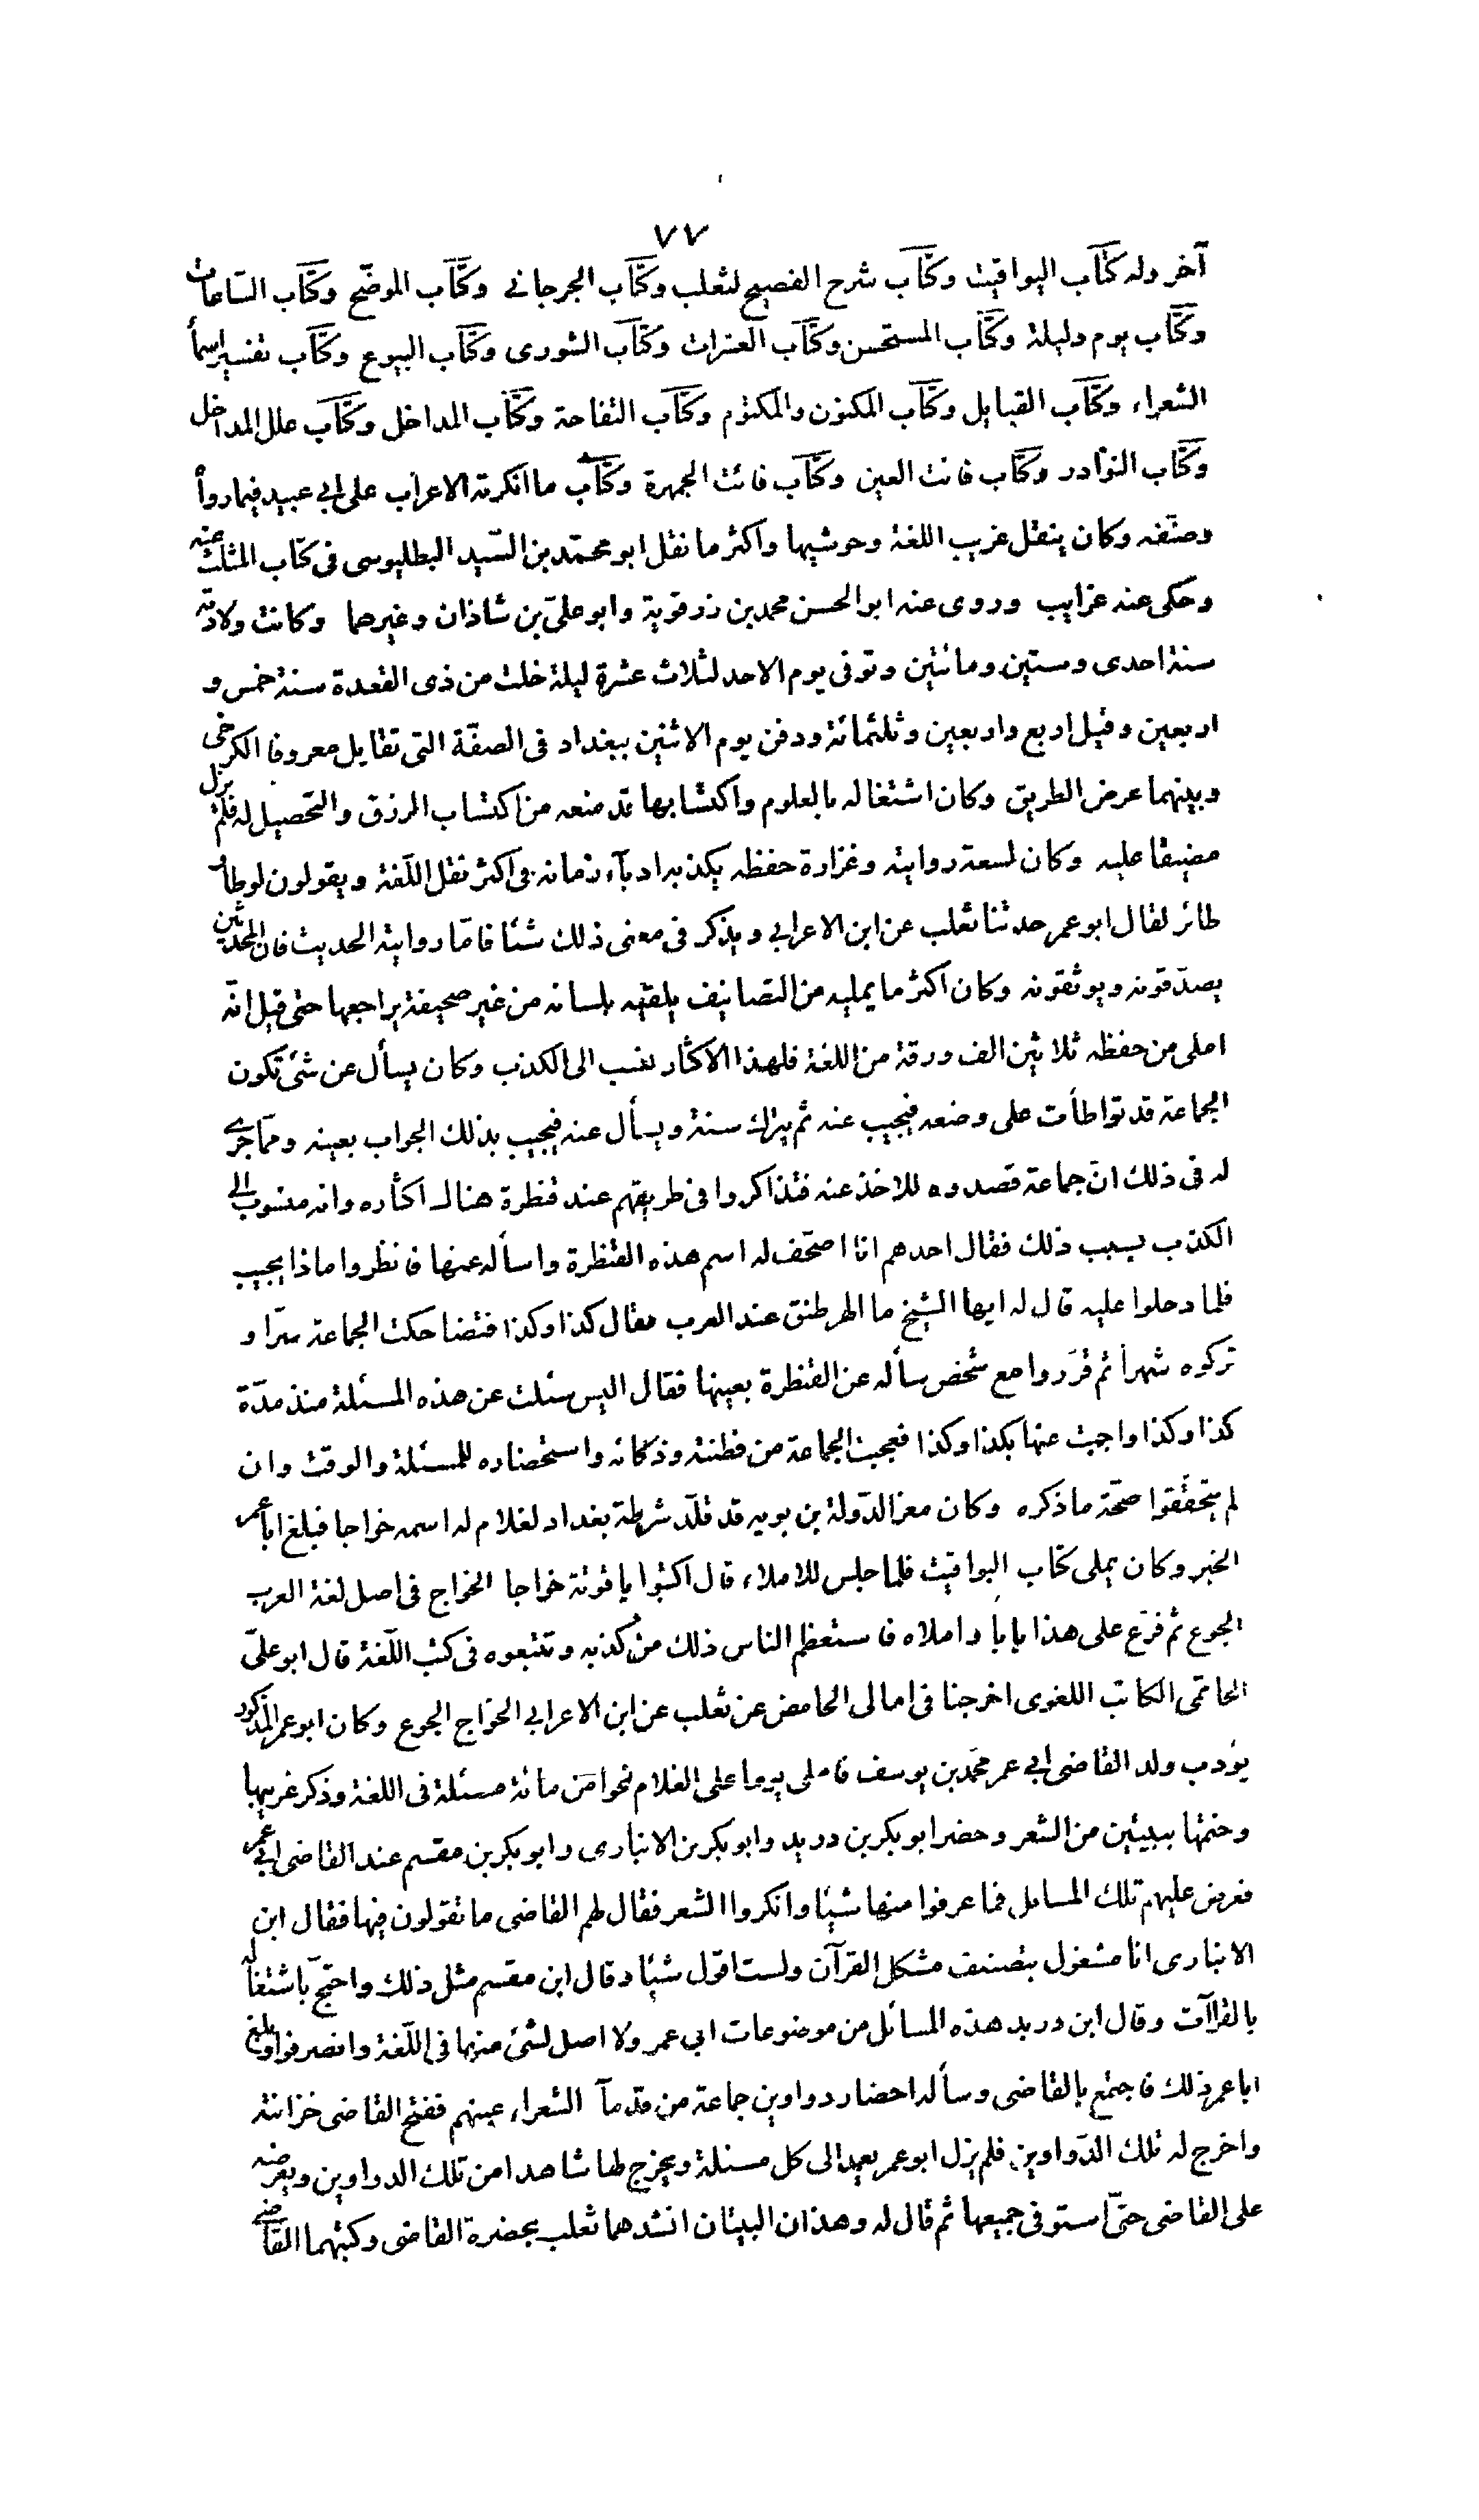 ٧٧
آخر وله كتاب اليواقيت وكتاب شرح الفصيح لثعلب وكتاب الجرجانى وكتاب الموضّح وكتاب السّاعات
وكتاب يوم وليلة وكتاب المستحسن وكتاب العشرات وكتاب الشورى وكتاب البيوع وكتاب تفسير اسمآ
الشعراء وكتاب القبايل وكتاب المكنون والمكتوم وكتاب التفاحة وكتاب المداخل وكتاب علل المداخل
وكتاب النوادر وكتاب فائت العين وكتاب فائت الجمهرة وكتاب ما انكرته الاعراب على ابى عبيد فيما رواه
وصنّفه وكان ينقل غريب اللغة وحوشيها واكثر ما نقل ابو محمّد بن السّيد البطليوسى فى كتاب المثلث عنه
وحكى عنه غرايب وروى عنه ابو الحسن محمد بن رزقوية وابو علىّ بن شاذان وغيرهما وكانت ولادته
سنة احدى وستين ومائتين وتوفى يوم الاحد لثلاث عشرة ليلة خلت من ذى القعدة سنة خمس و
اربعين وقيل اربع واربعين وثلثمائة ودفن يوم الاثنين ببغداد فى الصفّة التى تقابل معروفا الكرخى
وبينهما عرض الطريق وكان اشتغاله بالعلوم واكتسابها قد منعه من اكتساب الرزق والتحصيل له فلم يزل
مضيقا عليه وكان لسعة روايته وغزارة حفظه يكذبه ادبآء زمانه فى اكثر نقل اللّغة ويقولون لو طار
طائر لقال ابو عمر حدثنا ثعلب عن ابن الاعرابى ويذكر فى معنى ذلك شئا فامّا روايته الحديث فان المحدثين
يصدّقونه ويوثقونه وكان اكثر ما يمليه من التصانيف يلقيه بلسانه من غير صحيفة يراجعها حتى قيل انّه
املى من حفظه ثلاثين الف ورقة من اللغة فلهذا الاكثار نسب الى الكذب وكان يسأل عن شئ تكون
الجماعة قد تواطأت على وضعه فيجيب عنه ثم يترك سنة ويسأل عنه فيجيب بذلك الجواب بعينه وممّا جرى
له فى ذلك انّ جماعة قصدوه للاخذ عنه فتذاكروا فى طريقهم عند قنطرة هناك اكثاره وانه منسوب الى
الكذب بسبب ذلك فقال احدهم انا اصحّف له اسم هذه القنظرة واسأله عنها فانظروا ماذا يجيب
فلما دخلوا عليه قال له ايها الشيخ ما الهرطنق عند العرب فقال كذا وكذا فتضاحكت الجماعة سرّا و
تركوه شهراً ثم قرّروا مع شخص سأله عن القنظرة بعينها فقال اليس سئلت عن هذه المسئلة منذ مدّة
كذا وكذا واجبت عنها بكذا وكذا فعجبت الجماعة من فطنته وذكائه واستحضاره للمسئلة والوقت وان
لم يتحققوا صحّة ما ذكره وكان معز الدّولة بن بويه قد قلّد شرطة بغداد لغلام له اسمه خواجا فبلغ ابا عمر
الخبر وكان يملى كتاب اليواقيت فلما جلس للاملاء قال اكتبوا ياقوتة خواجا الخواج فى اصل لغة العرب
الجوع ثم فرّع على هذا بابا واملاه فاستعظم الناس ذلك من كذبه وتتبعوه فى كتب اللّغة قال ابو علىّ
الحاتمى الكاتب اللغوى اخرجنا فى امالى الحامض عن ثعلب عن ابن الاعرابى الخواج الجوع وكان ابو عمر المذكور
يؤدب ولد القاضى ابى عمر محمّد بن يوسف فاملى يوما على الغلام نحوا من مائة مسئلة فى اللغة وذكر غريبها
وختمها ببيتين من الشعر وحضر ابو بكر بن دريد وابو بكر بن الانبارى وابو بكر بن مقسم عند القاضى ابى عمر
فعرض عليهم تلك المسايل فما عرفوا منها شيئا وانكروا الشعر فقال لهم القاضى ما تقولون فيها فقال ابن
الانبارى انا مشغول بتصنيف مشكل القرآن ولست اقول شيئا وقال ابن مقسم مثل ذلك واحتجّ باشتغاله
بالقراآت وقال ابن دريد هذه المسائل من موضوعات ابى عمر ولا اصل لشئ منها فى اللّغة وانصرفوا وبلغ
ابا عمر ذلك فاجتمع بالقاضى وسأله احضار دواوين جماعة من قدمآ الشعراء عينهم ففتح القاضى خزانته
واخرج له تلك الدّواوين فلم يزل ابو عمر يعيد الى كل مسئلة ويخرج لها شاهدا من تلك الدواوين ويعرضه
على القاضى حتّى استوفى جميعها ثم قال له وهذان البيتان انشدهما ثعلب بحضرة القاضى وكتبهما القاضى